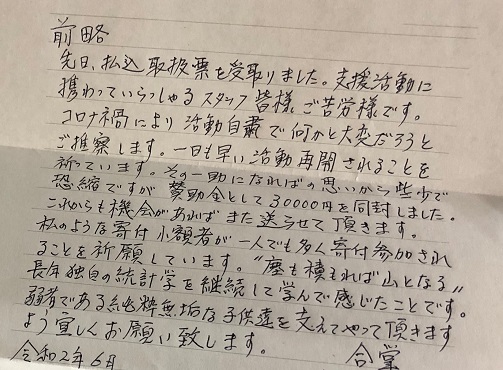 前略
先日、払込取扱票を受取りました。支援活動に
携わっていらっしゃるスタッフ皆様ご苦労様です。
コロナ禍により活動自粛で何かと大変だろうと
ご推察します。一日も早い活動再開されることを
祈っています。その一助になればの思いから些少で
恐縮ですが賛助金として30000円を同封しました。
これからも機会があればまた送らせて頂きます。
私のような寄付小額者が一人でも多く寄付参加され
ることを祈願しています。"塵も積もれば山となる"
長年独自の統計学を継続して学んで感じたことです。
弱者である純粋無垢な子供達を支えてやって頂きます
よう宜しくお願い致します。
令和2年6月 合掌